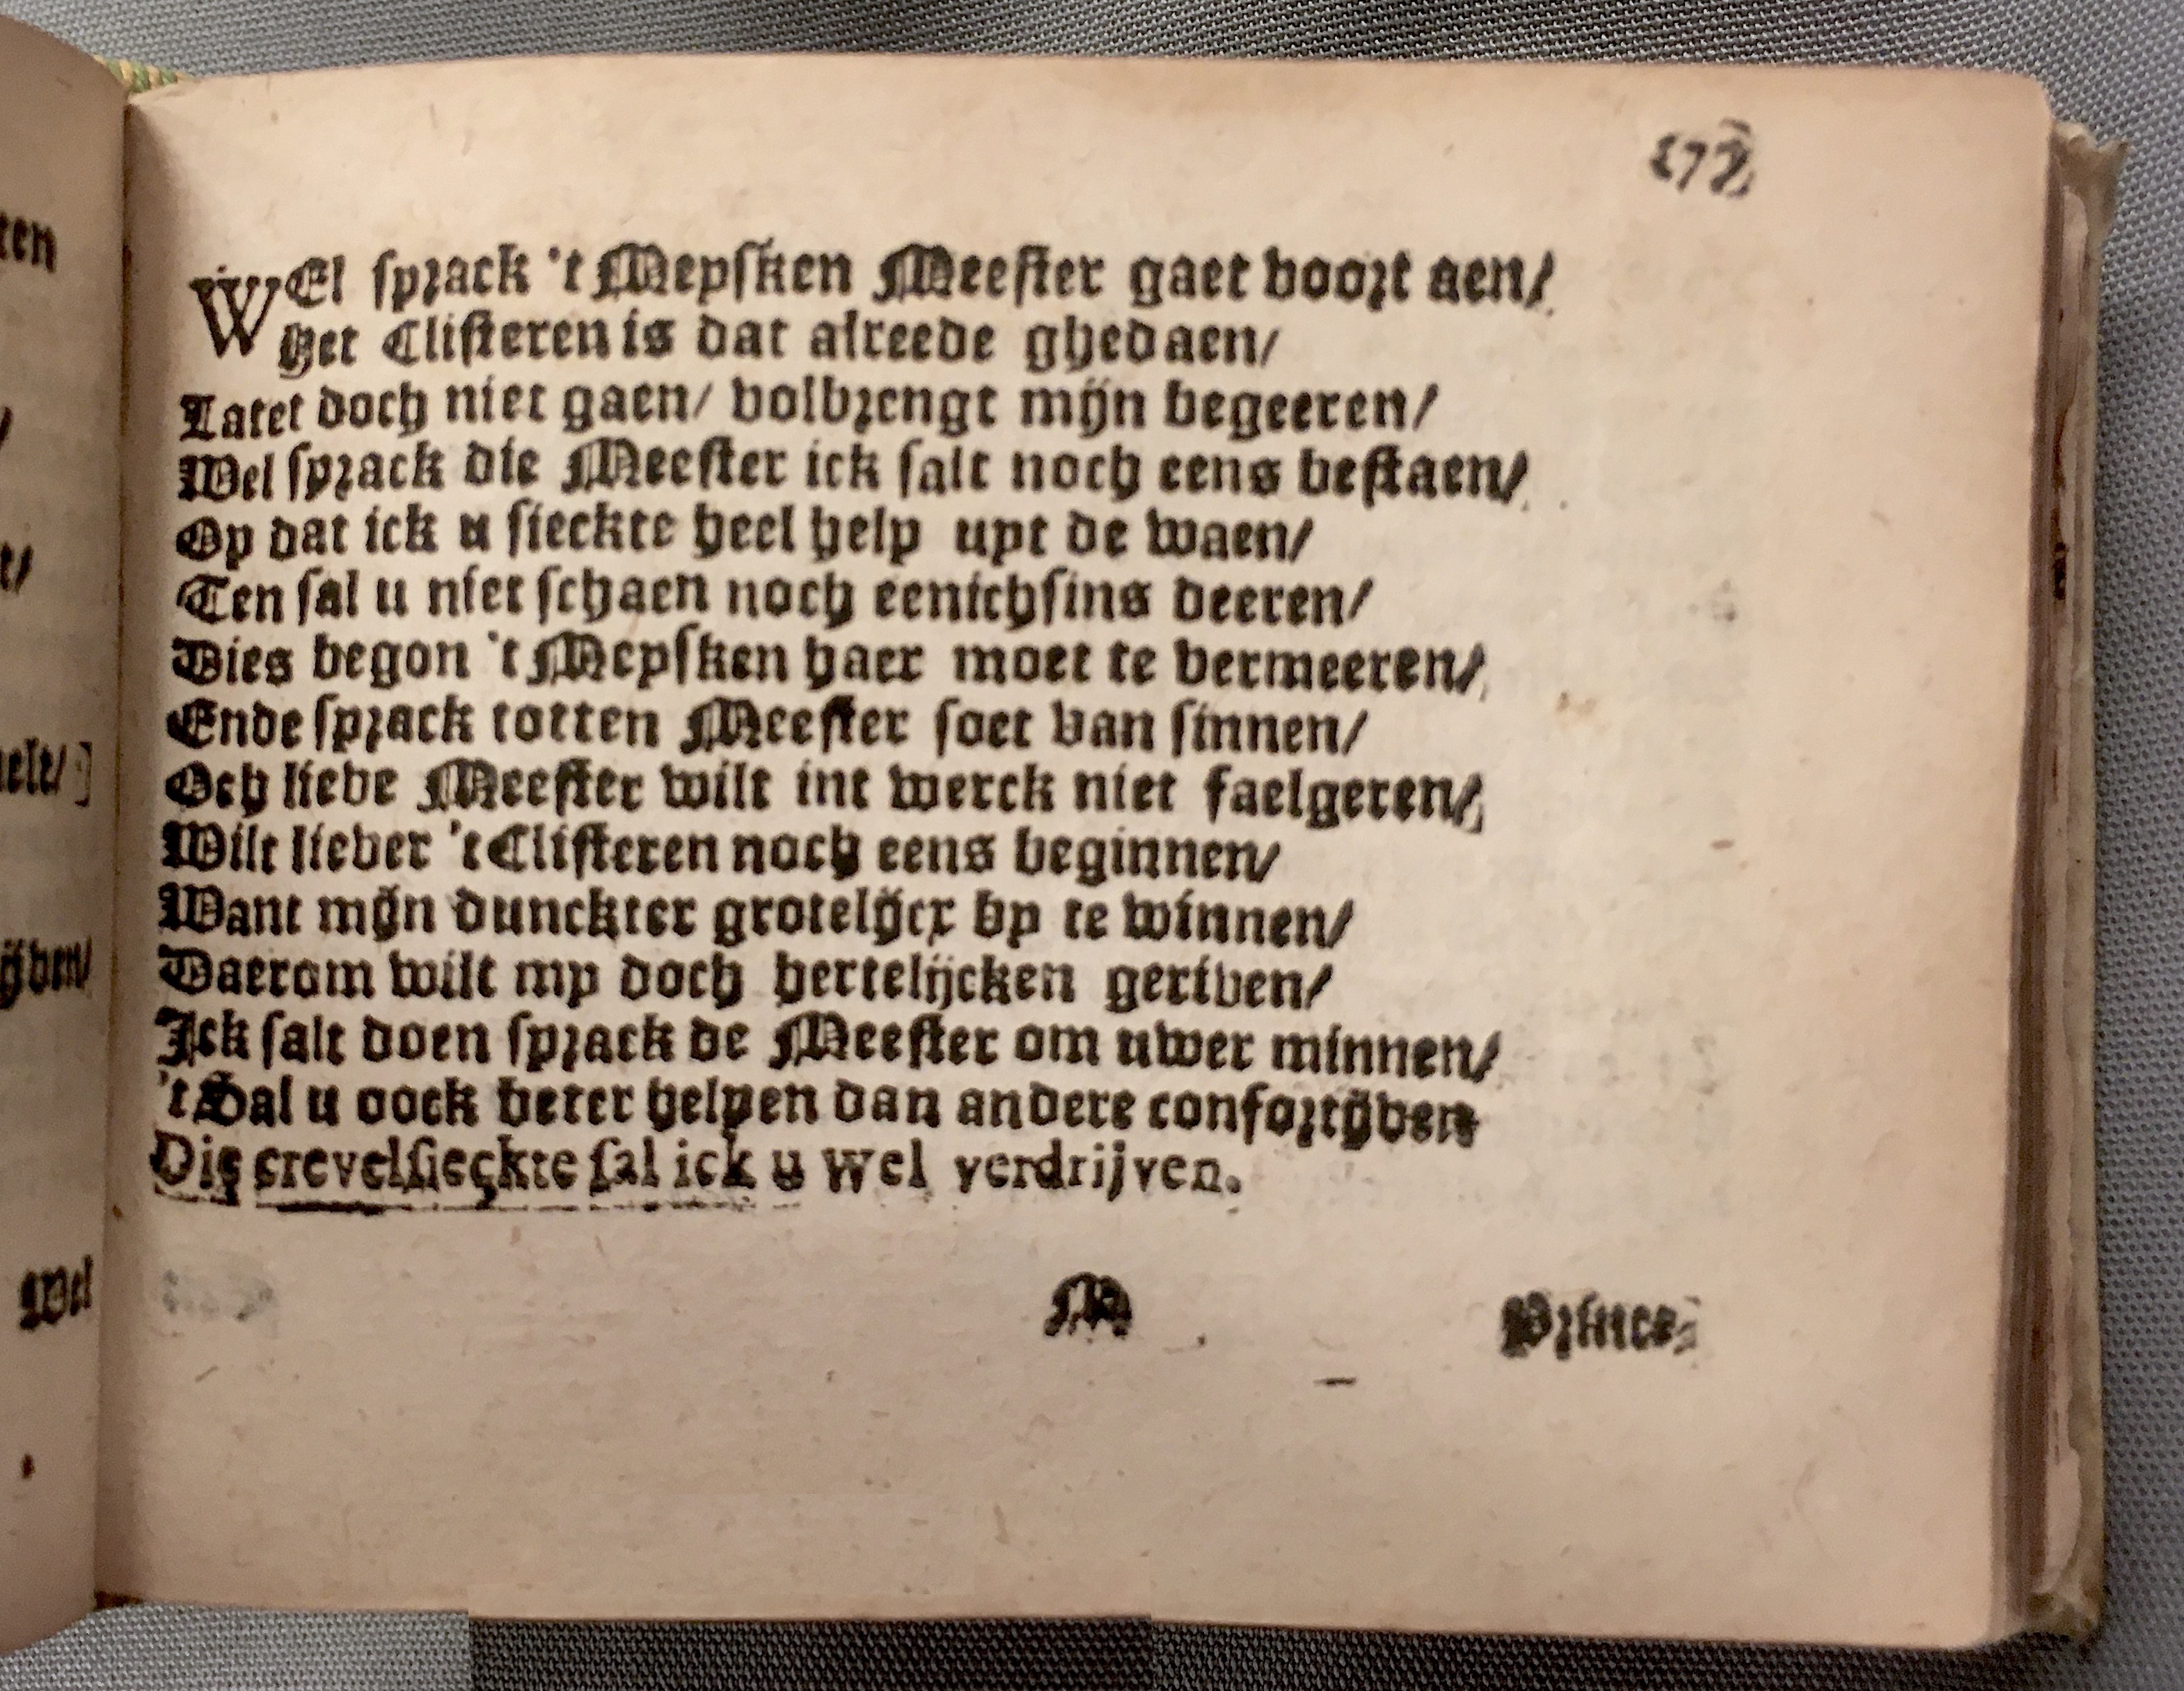 177
WEl sprack 't Meysken Meester gaet voort aen/
Het Clisteren is dat alreede ghedaen/
Latet doch niet gaen/ volbrengt mijn begeeren/
Wel sprack die Meester ick salt noch eens bestaen/
Op dat ick u sieckte heel help uyt de waen/
Ten sal u niet schaen noch eenichsins deeren/
Dies begon 't Meysken haer moet te vermeeren/
Ende sprack totten Meester soet van sinnen/
Och lieve Meester wilt int werck niet faelgeren/
Wilt liever 't Clisteren noch eens beginnen/
Want mijn dunckter grotelijcx by te winnen/
Daerom wilt my doch hertelijcken geriven/
Ick salt doen sprack de Meester om uwer minnen/
't Sal u oock beter helpen dan andere confortijven
Die crevelsieckte sal ick u wel verdrijven.
M Prince